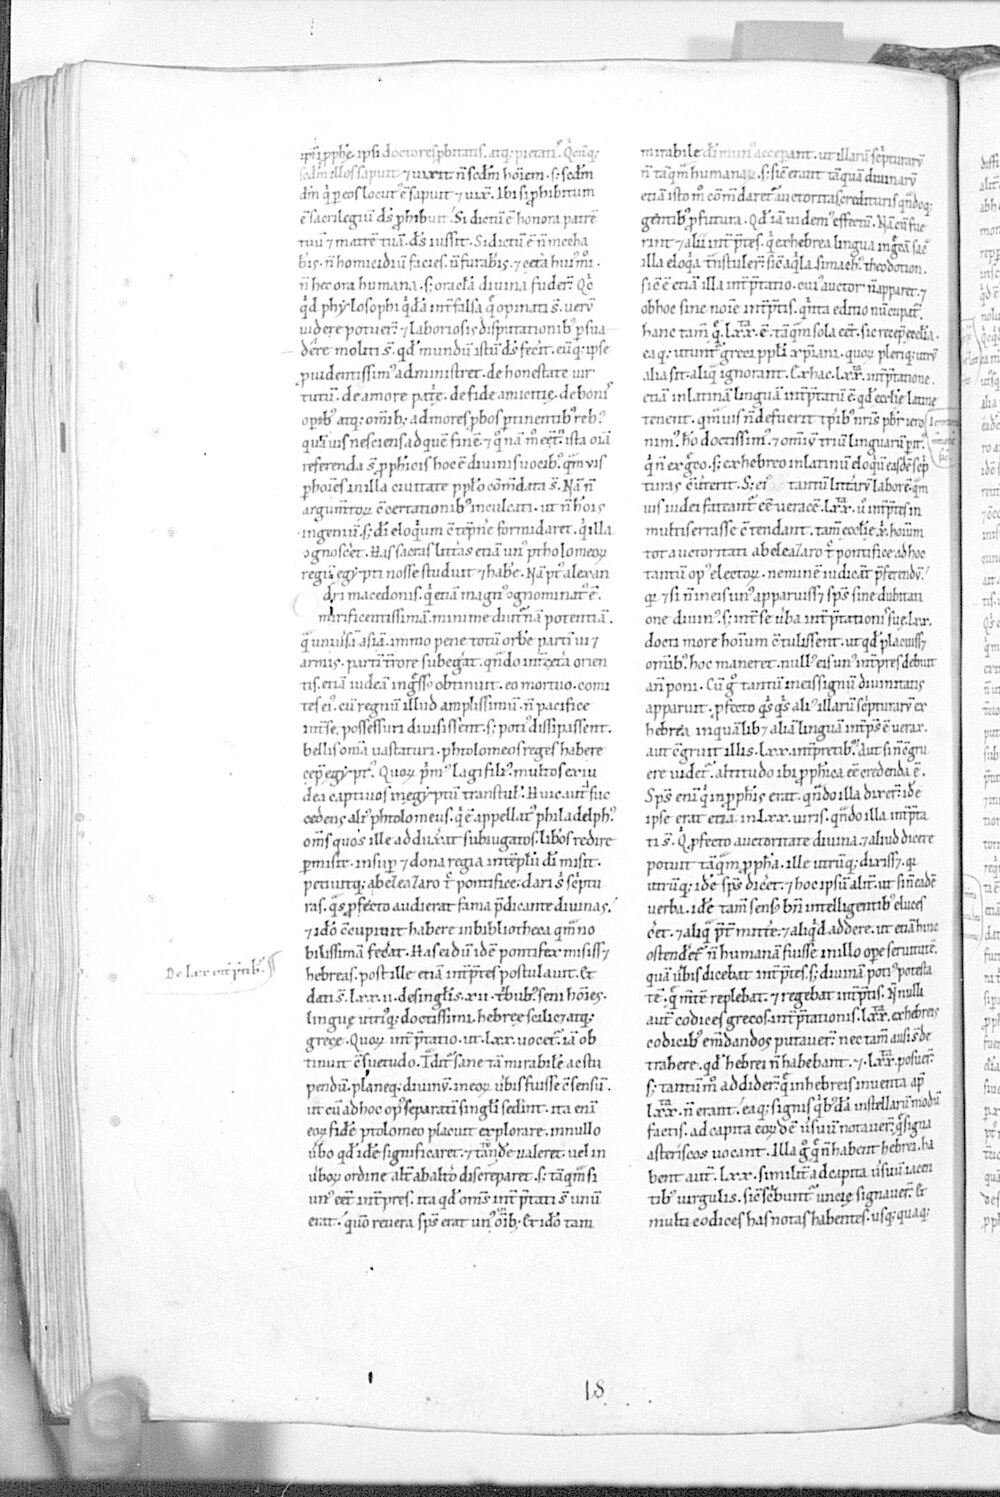 ipsi ꝓphe ipsi doctores ꝓbitatis. atq; pietatis. Q̇cūq;
scd̄m illos sapuit ⁊ uixit n̄ scd̄m hoīem. s; scd̄m
dm̄ q̇ ꝑ eos locut᷒ ē sapuit ⁊ uix̄. Ibi si ꝓhibitum
ē sacrilegiū ds̄ ꝓhibuit. Si dictū ē honora patrē
tuū ⁊ matrē tuā. ds̄ iussit. Si dictū ē n̄ mecha
b̄is. n̄ homicidiū facies. n̄ furab̄is. ⁊ cet̄a hui᷒mⁱ.
n̄ hec ora humana. s; oracl̄a divina fuder̄. Qc̄
q̇d phylosophi q̇dā int̄ falsa q̄ opinati s̄. verū
uidere potuer̄. ⁊ laboriosis disputationib᷒ ꝑsua
dēre moliti s̄. qd̄ mundū istū ds̄ fec̄it. eūq; ipse
ꝓuidentissim᷒ administret. de honestate uir
tutū. de amore pat̄e. de fide amicitie. de bonis
opib᷒ atq; om̄ib; ad mores ꝓbos ꝑtinentib᷒ reb᷒
quāuis nescients ad quē finē. ⁊ q̄nā m̊ eēt᷒. ista oīa
referenda s̄ ꝓpheicis hoc ē divinis uocib᷒ qm̄uis
ꝑ hoīes in illa ciuitate pplo cōm̄data s̄. Nā n̄
argum̄toꝝ ɔ̄certationib᷒ inculcati. ut n̄ hoīs
ingeniū. s; dī eloq̇um ɔ̄tēpn̄e formidaret. q̇ illa
ɔgnosc̄et. Has sacras litt̄as etiā un᷒ ptholomeoꝝ
regū egypti nosse studuit ⁊ hab̄e. Nā p᷒t alexan
dri macedonis. q̇ etiā magn᷒ ɔgnominat᷒ ē.
mirificentissimā. minime diut̄nā potentiā.
q̄ uniūsā asiā. immo pene totū orbē partī ui ⁊
armis. partī t̄rore subeḡat. qn̄do int̄ cet̄a orien
tis. etiā iudeā ingr̄ss᷒ obtinuit. eo mortuo. comi
tes ei᷒. cū regnū illud amplissimū. n̄ pacifice
int̄ se. possessuri diuisissent. s; poti᷒ dissipassent.
bellis om̄a uastaturi. phtolomeos reges habere
cep̄ egypt᷒. Quoꝝ p̄m᷒ lagi fili᷒. multos ex iu
dea captiuos in egyptū transtul̄. Huic aut̄ suc
cedens alt̄ phtolomeus. q̇ ē appellat᷒ philadelph᷒.
om̄s quos ille addux̄at subiugatos. libōs redire
ꝑmisit. insuꝑ ⁊ dona regia in tēplū dī misit.
petiuitq; ab eleazaro t̄ᷓc pontifice. dari s̄ scr̄iptu
ras. q̄s ꝓfecto audierat fama p̄dicante divinas.
⁊ idō ɔ̄cupiuit habere in bibliotheca qm̄ no
bilissimā fec̄at. Has ei dū idē pontifex misiss̄
hebreas. post ille etiā int̄p̄tes postulauit. Et
dati s̄. lxxii. de singl̄is. xii. t̄bub᷒. seni hōies.
lingue utriq; doctissimi. hebree scilic̄ atq;
grece. Quoꝝ int̄p̄tatio. ut. lxx. uocet᷒. iā ob
tinuit ɔ̄suetudo. Tdit̄ sane tā mirabile ac stu
pendū. planeq; diuinū. in eoꝝ ūbis fuisse ɔ̄sensū.
ut cū ad hoc op᷒ separatī singl̄i sed̄int. ita enī
eoꝝ fidē ptolomeo placuit explorare. in nullo
ūbo qd̄ idē significaret. ⁊ tm̄dē ualeret. uel in
ūboꝝ ordine alt̄ ab alt̄o discreparet. s; tāqm̄ si
un᷒ eēt int̄pres. ita qd̄ om̄s int̄p̄tati s̄ unū
erat. quō reuera sps̄ erat un᷒ ī oīb;. Et idō tam
mirabile dī mun᷒ accepant. ut illarū sc̄pturarū
n̄ tāqm̄ humanaꝝ. s; sic̄ erant tāquā divinarū
etiā isto m̊ cōm̄daret᷒ auctoritas. credituris qn̄doq;
gentib᷒ ꝓfutura. Qd̄ iā uidem᷒ effectū. Nā cū fue
rint ⁊ alii int̄p̄tes. q̇ ex hebrea lingua in gr̄cā sac̄
illa eloq̇a t̄nstuler̄. sic̄ aq̇la. simach᷒. theodotion.
sic̄ ē etiā illa int̄p̄tatio. cui᷒ auctor n̄ apparet. ⁊
ob hoc sine noīe int̄p̄tis. q̇nta editio nūcupat᷒.
hanc tam̄ q̄. lxx. ē. tāqm̄ sola eēt. sic recep̄ ecclīa.
eaq; utunt᷒ greci ppl̄i xp̄iani. quoꝝ pleriq; utrū
alia sit. aliq̄ ignorant. Ex hac. lxx. int̄p̄tatione.
etiā in latinā linguā int̄p̄tatū ē. qd̄ ecclīe latine
tenent. qm̄uis n̄ defuerit tp̄ib᷒ nr̄is pb̄r iero
nim᷒. hō doctissim᷒. ⁊ om̄iū triū linguarū ꝑit᷒.
q̇ n̄ ex gr̄eo. s; ex hebreo in latinū eloq̇ū easdē sc̄p
turas ɔ̄ūterit. S; ei᷒ tantū litt̄arū laborē. qm̄
uis iudei fateant᷒ eē ueracē. lxx. ū int̄p̄tes in
multis errasse ɔ̄tendant. tam̄ ecclīe x̄. hoium
tot auctoritati ab eleazaro t̄c pontifice ad hoc
tantū op᷒ electoꝝ. neminē iudicāt p̄ferendū.
q̄ ⁊ si n̄ in eis un᷒ apparuiss̄ sps̄ sine dubitati
one divin᷒. s; int̄ se ūba int̄p̄tationis sue. lxx.
docti more hoīum ɔ̄tulissent. ut qd̄ placuiss̄
om̄ib᷒ hoc maneret. null᷒ eis un᷒ int̄pres debuit
an̄poni. Cū q̊ tantū in eis signū divinitatis
apparuit. ꝓfecto q̇sq̇s ali᷒ illarū sc̄pturarū ex
hebrea in quālib᷒ aliā linguā int̄p̄s ē uerax.
aut ɔ̄gruit illis. lxx. int̄pretib᷒. aut si n̄ ɔ̄gru
ere uidet᷒. altitudo ibi ꝓphica eē credenda ē.
Sps̄ enī q̇ in ꝓphis erat. qn̄do illa dixer̄. idē
ipse erat etiā in lxx. uiris. qn̄do illa int̄p̄ta
ti s̄. Q̇ ꝓfecto auctoritate divina. ⁊ aliud dicere
potuit tāqm̄ ꝓpha. ille utrūq; dixiss̄. q̇
utrūq; idē sps̄ dic̄et. ⁊ hoc ipsū alit̄. ut si n̄ eadē
uerba. idē tam̄ sens᷒ bn̄ intelligentib᷒ eluces
c̄et. ⁊ aliq̇ p̄t mitt̄e. ⁊ aliq̇d addere. ut etiā hinc
ostendet᷒ n̄ humanā fuisse in illo ope seruitutē.
quā ūbis dicebat int̄p̄tes. s; divinā poti᷒ potesta
tē. q̄ mt̄ē replebat. ⁊ regebat int̄p̄tis. Nn̄ulli
aut̄ codices grecos. int̄p̄tationis. lxx. ex hebreis
codicib᷒ em̄dandos putauer̄. nec tam̄ ausi s̄ de
trahere. qd̄ hebrei n̄ habebant. ⁊. lxx. posuer̄.
s; tantūm᷒ addider̄. q̄ in hebreis inuenta ap̄
lxx. n̄ erant. eaq; signis q̇b᷒dā in stellarū modū
factis. ad capita eoꝝdē ūsuū notauer̄. q̄ signa
asteriscos uocant. Illa q̊. q̄ n̄ habent hebrei. ha
bent aut̄. lxx. similit̄ ad capita ūsuū iacen
tib᷒ uirgulis. sic̄ sc̄bunt᷒ uncie signauer̄. Et
multi codices has notas habentes. usq; quaq;
De lxx int̄p̄tib᷒.
18